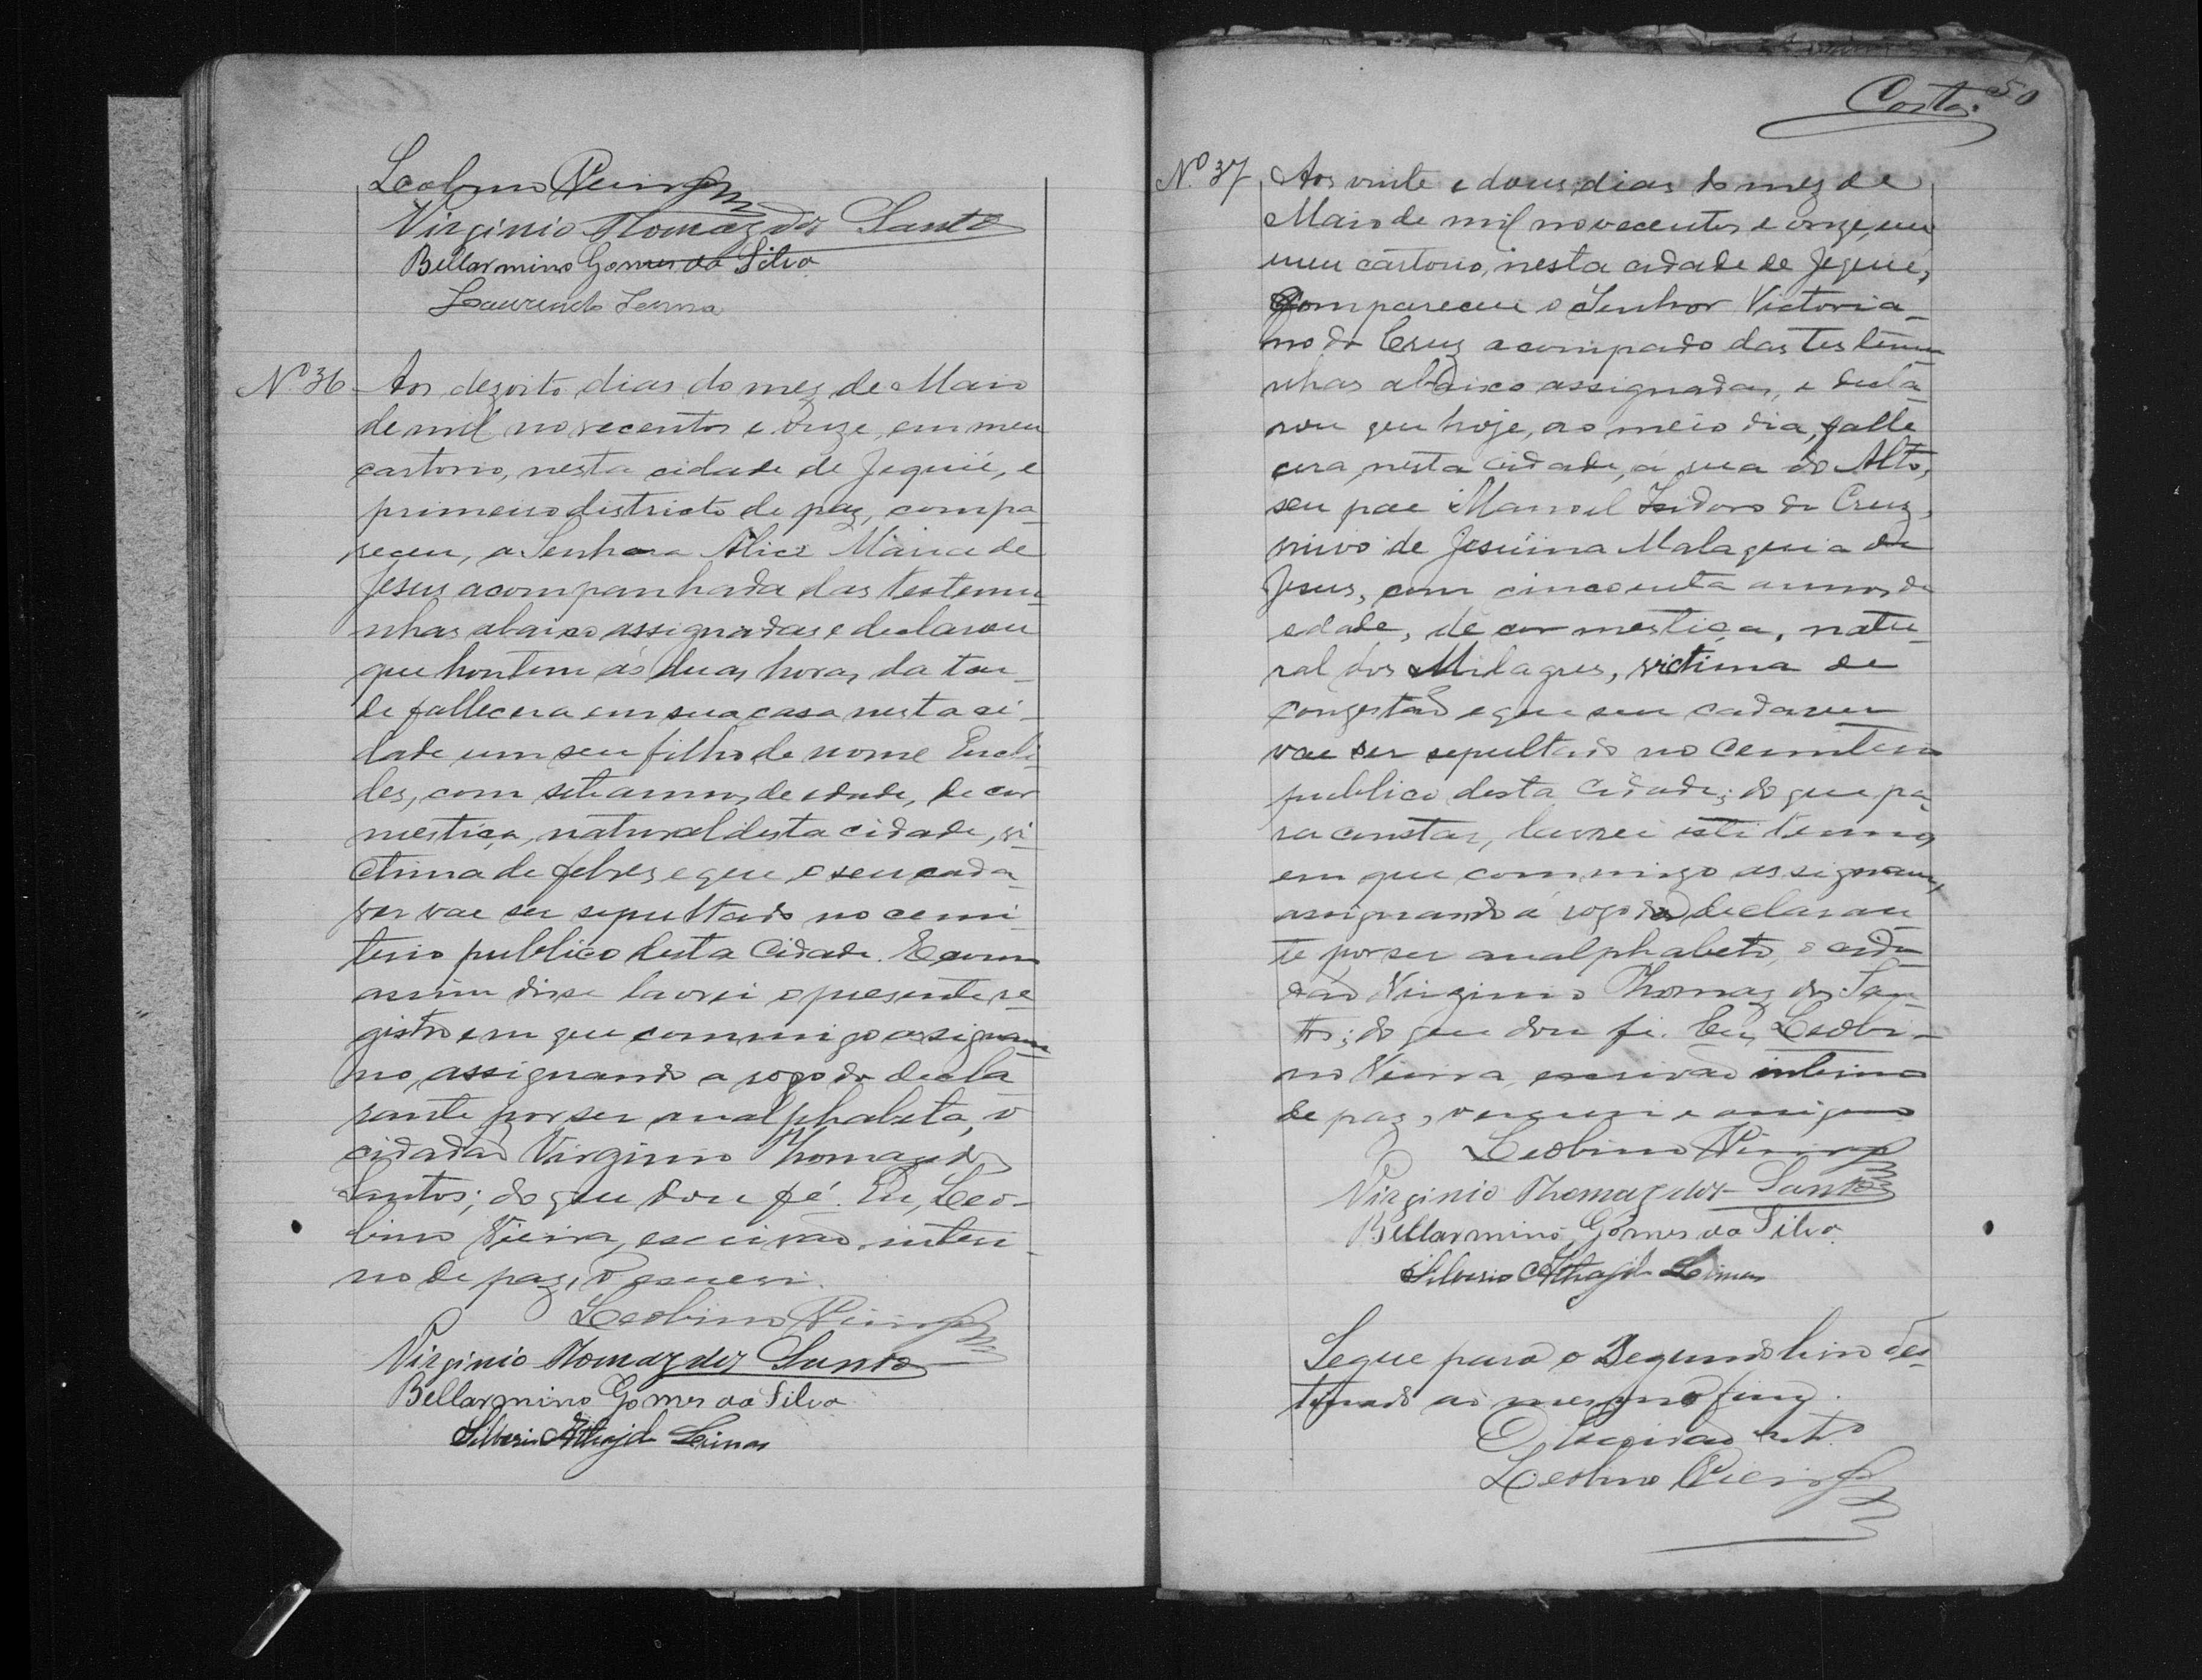 Leobino Vieira
Virginio Thomaz dos Santos
Bellarmino Gomes da Silva
Laurindo
Nº 36 Aos dezoito dias do mez de Maio
de mil novecentos e onze, em meu
cartorio, nesta cidade de Jequié, e
primeiro districto de paz, compa-
receu, a Senhora Alice Maria de
Jesus acompanhada das testemu-
nhas abaixo assignadas e declarou
que hontem ás duas horas da tar-
de fallecera em sua casa nesta ci-
dade um seu filho de nome Eucli-
des, com sete annos de edade, de cor
mestiça, natural desta cidade, vi-
ctima de febres e que o seu cada-
ver vae ser sepultado no cemi-
terio publico desta Cidade. E como
assim disse lavrei o presente re-
gistro em que commigo assignam
no, assignando a rogo da decla-
rante por ser analphabeta, o
cidadão Virginio Thomaz dos
Santos; do que dou fé. Eu, Leo-
bino Vieira, escrivão interi-
no de paz, o escrevi.
Leobino Vieira
Virginio Thomaz dos Santos
Bellarmino Gomes da Silva
Silverio Athayde Lima
Costa. 50
Nº 37 Aos vinte e dous dias do mez de
Maio de mil novecentos e onze, em
meu cartorio, nesta cidade de Jequié,
compareceu o Senhor Victoria-
no da Cruz acompado das testemu-
nhas abaixo assignadas, e decla-
rou que hoje, ao meio dia, falle
cera, nesta cidade, á rua do Alto,
seu pae Manoel Izidoro da Cruz,
viuvo de Jesuina Malaquia de
Jesus, com cincoenta annos de
edade, de cor mestiça, natu-
ral dos Milagres, victima de
congestão e que seu cadaver
vae ser sepultado no Cemiterio
publico desta Cidade; do que pa-
ra constar, lavrei este termo,
em que commigo assignam,
assignando á rogo do declaran-
te por ser analphabeto, o cida-
dão Virginio Thomaz dos San-
tos; do que dou fé. Eu, Leobi-
no Vieira, escrivão interino
de paz, o escrevi e assigno
Leobino Vieira
Virginio Thomaz dos Santos
Bellarmino Gomes da Silva
Silverio Athayde Lima
Segue para o Segundo livro des-
tinado ao mesmo fim.
O Escrivão intº
Leobino Vieira